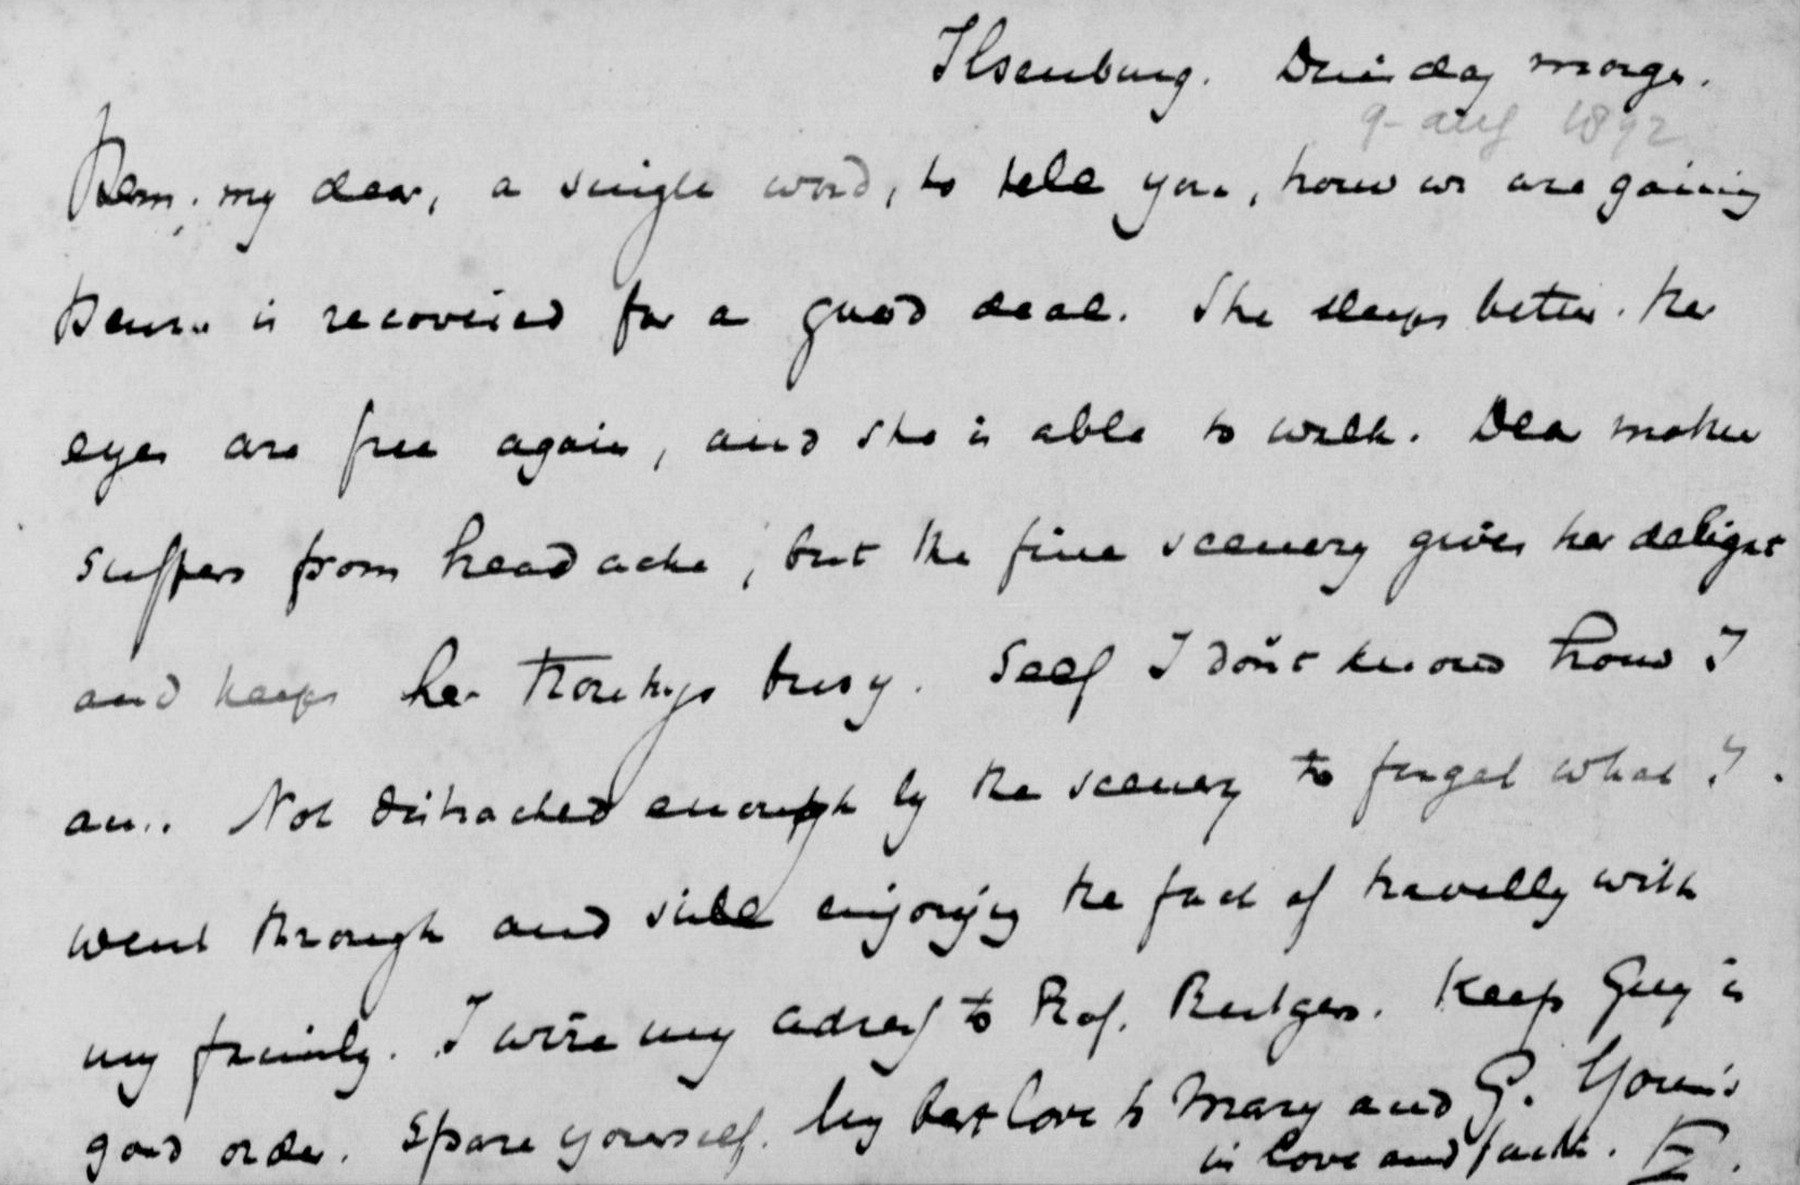 Ilsenburg. Dinsdag morgen.
9- aug 1892
my dear, a single word, to tell you, how we are gaining
is recovered for a good deal. She sleeps better. Her
eyes are free again, and she is able to walk. Dear mother
suffers from headache, but the fine scenery gives her delight
and keeps her thoughts busy. Self I don't know how I
am. Not distracted enough by the scenery to forget what I
went through and still enjoying the fact of travelly with
my family. I wire my adress to Prof. Rutgers. Keep Guy in
good order. Spare yourself. My best love to Mary and G. Yours
in love and faith.